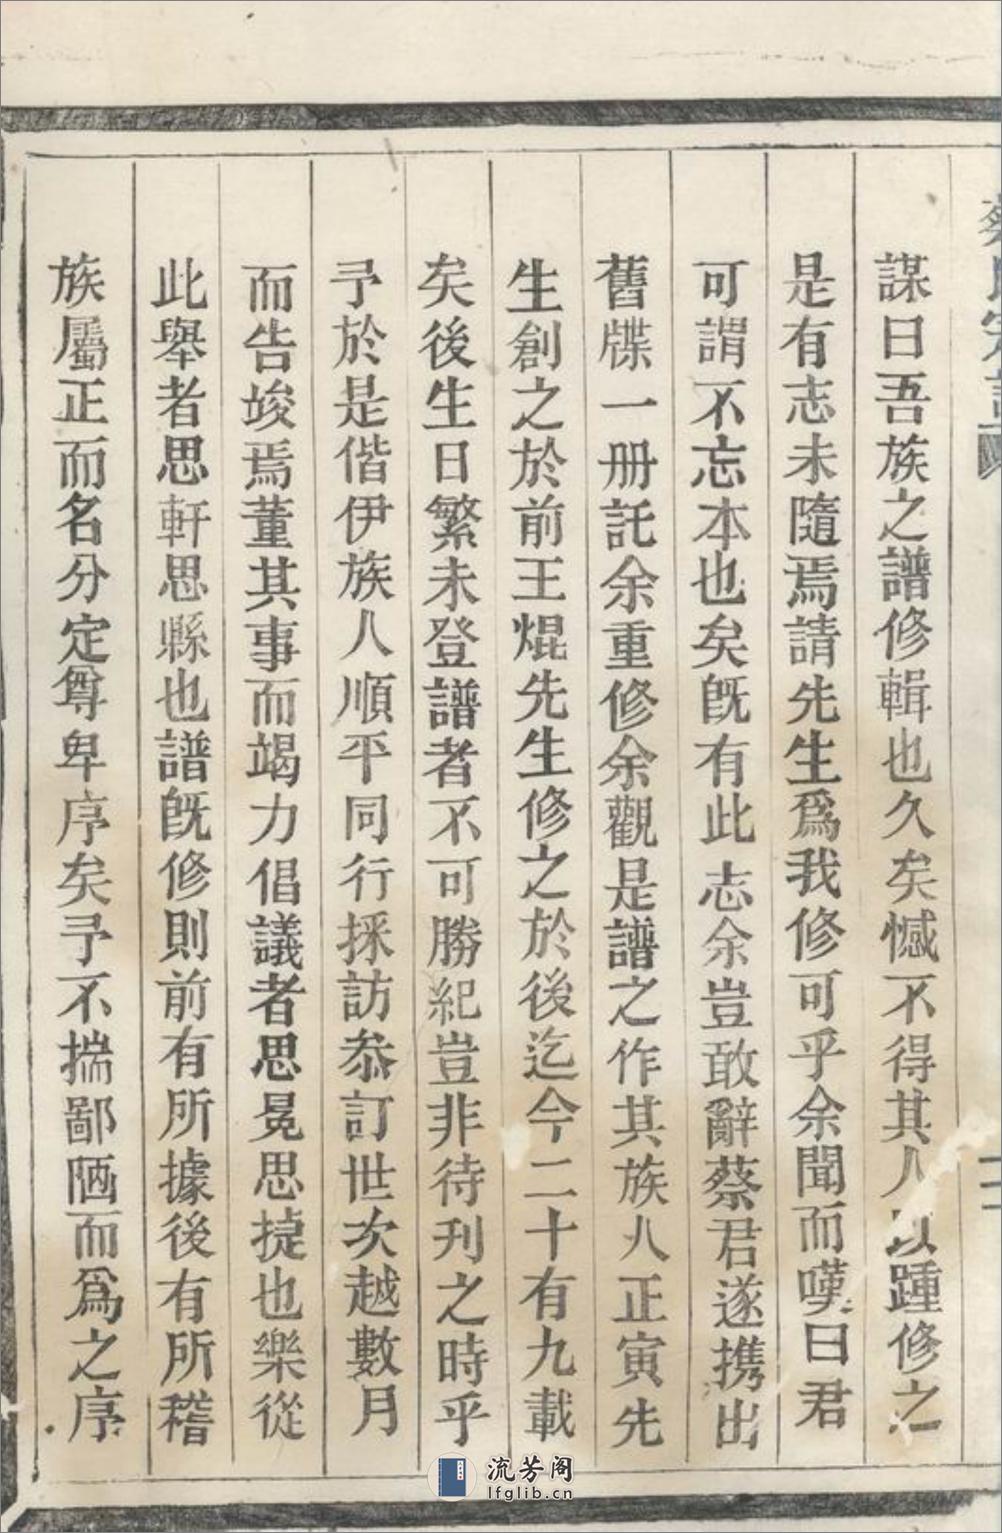 蔡氏宗譜
謀曰吾族之譜修輯也久矣憾不得其人以踵修之
是有志未隨焉請先生爲我修可乎余聞而嘆曰君
可謂不忘本也矣旣有此志余豈敢辭蔡君遂携出
舊牒一册託余重修余觀是譜之作其族人正寅先
生創之於前王焜先生修之於後迄今二十有九載
矣後生日繁未登譜者不可勝紀豈非待刊之時乎
予於是偕伊族人順平同行採訪叅訂世次越數月
而告竣焉董其事而竭力倡議者思冕思㨗也樂從
此舉者思軒思縣也譜旣修則前有所據後有所稽
族屬正而名分定尊卑序矣予不揣鄙陋而爲之序
流芳阁
lfglib.cn